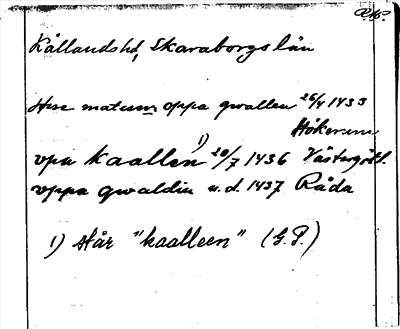 RAP.
Kållands hd, Skaraborgs län
Hus matum oppa qwallen 26/4 1433
Hökerum
vpa kaallin 1) 20/7 1436 Västergötl.
vppa qwaldin u.d. 1437 Råda
1) står "kaalleen" (G.P.)